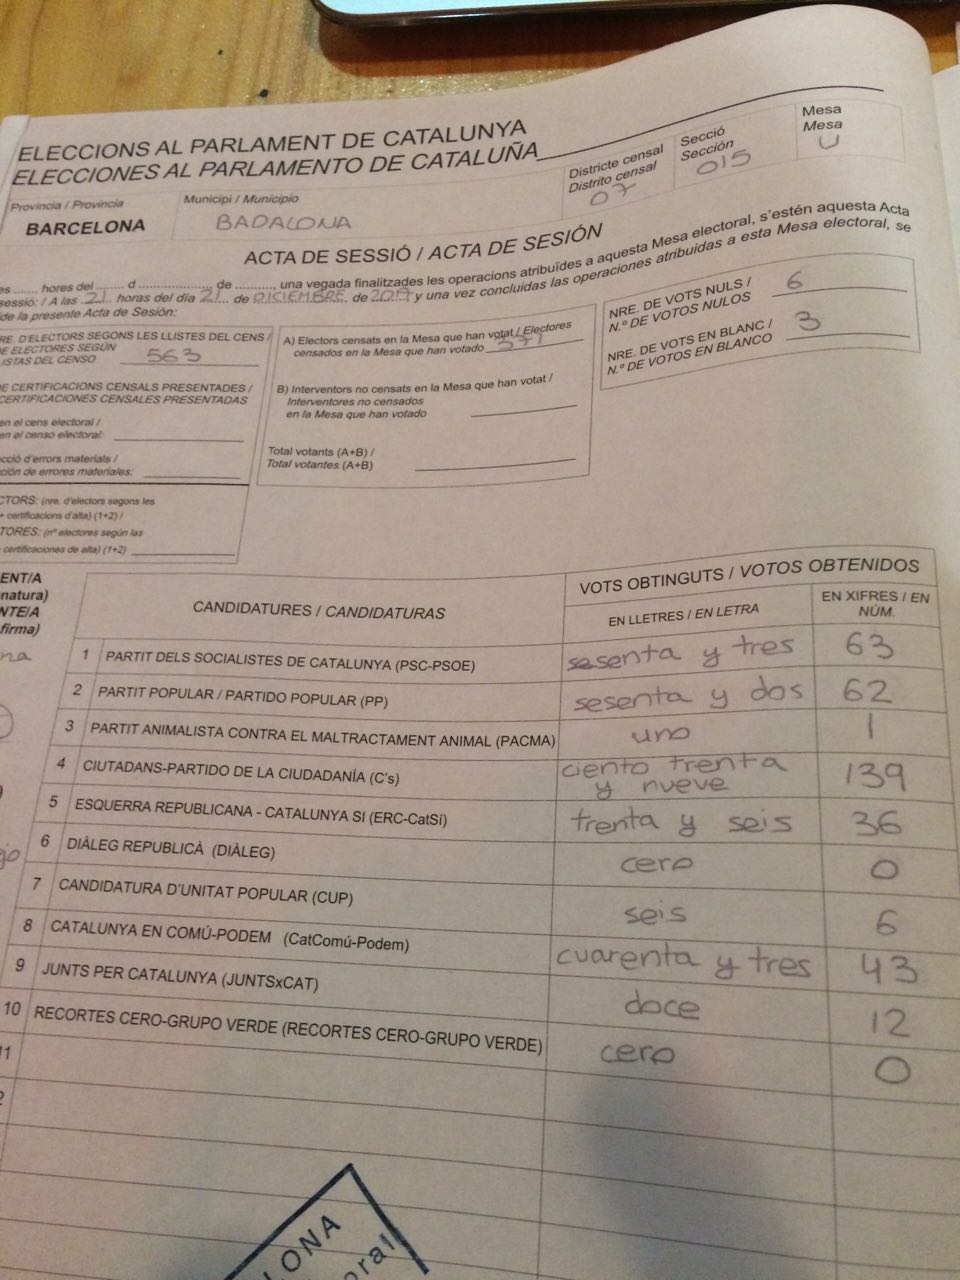 ELECCIONS AL PARLAMENT DE CATALUNYA
ELECCIONES AL PARLAMENTO DE CATALUÑA
Provincia / Provincia
BARCELONA
Municipi / Municipio
BADALONA
Districte censal
Distrito censal
07
Secció
Sección
015
Mesa
Mesa
U
ACTA DE SESSIÓ / ACTA DE SESIÓN
hores del ...... d .................. de .........., una vegada finalitzades les operacions atribuïdes a aquesta Mesa electoral, s'estén aquesta Acta
sessió: / A las 21 horas del día 21 de DICIEMBRE de 2017 y una vez concluidas las operaciones atribuidas a esta Mesa electoral, se
de la presente Acta de Sesión:
RE. D'ELECTORS SEGONS LES LLISTES DEL CENS /
E ELECTORES SEGÚN
LISTAS DEL CENSO 563
E CERTIFICACIONS CENSALS PRESENTADES /
CERTIFICACIONES CENSALES PRESENTADAS
en el cens electoral /
en el censo electoral:
cció d'errors materials /
ción de errores materiales:
CTORS: (nre. d'electors segons les
+ certificacions d'alta) (1+2) /
TORES: (nº electores según las
certificaciones de alta) (1+2)
A) Electors censats en la Mesa que han votat / Electores
censados en la Mesa que han votado 371
B) Interventors no censats en la Mesa que han votat /
Interventores no censados
en la Mesa que han votado
Total votants (A+B) /
Total votantes (A+B)
NRE. DE VOTS NULS /
N.º DE VOTOS NULOS 6
NRE. DE VOTS EN BLANC /
N.º DE VOTOS EN BLANCO 3
ENT/A
natura)
NTE/A
firma)
na
CANDIDATURES / CANDIDATURAS
VOTS OBTINGUTS / VOTOS OBTENIDOS
EN LLETRES / EN LETRA
EN XIFRES / EN
NÚM.
1 PARTIT DELS SOCIALISTES DE CATALUNYA (PSC-PSOE) sesenta y tres 63
2 PARTIT POPULAR / PARTIDO POPULAR (PP) sesenta y dos 62
3 PARTIT ANIMALISTA CONTRA EL MALTRACTAMENT ANIMAL (PACMA) uno 1
4 CIUTADANS-PARTIDO DE LA CIUDADANÍA (C's) ciento trenta
y nueve 139
5 ESQUERRA REPUBLICANA - CATALUNYA SI (ERC-CatSí) trenta y seis 36
6 DIÀLEG REPUBLICÀ (DIÀLEG) cero 0
7 CANDIDATURA D'UNITAT POPULAR (CUP) seis 6
8 CATALUNYA EN COMÚ-PODEM (CatComú-Podem) cuarenta y tres 43
9 JUNTS PER CATALUNYA (JUNTSxCAT) doce 12
10 RECORTES CERO-GRUPO VERDE (RECORTES CERO-GRUPO VERDE) cero 0
11
2
LONA
oral